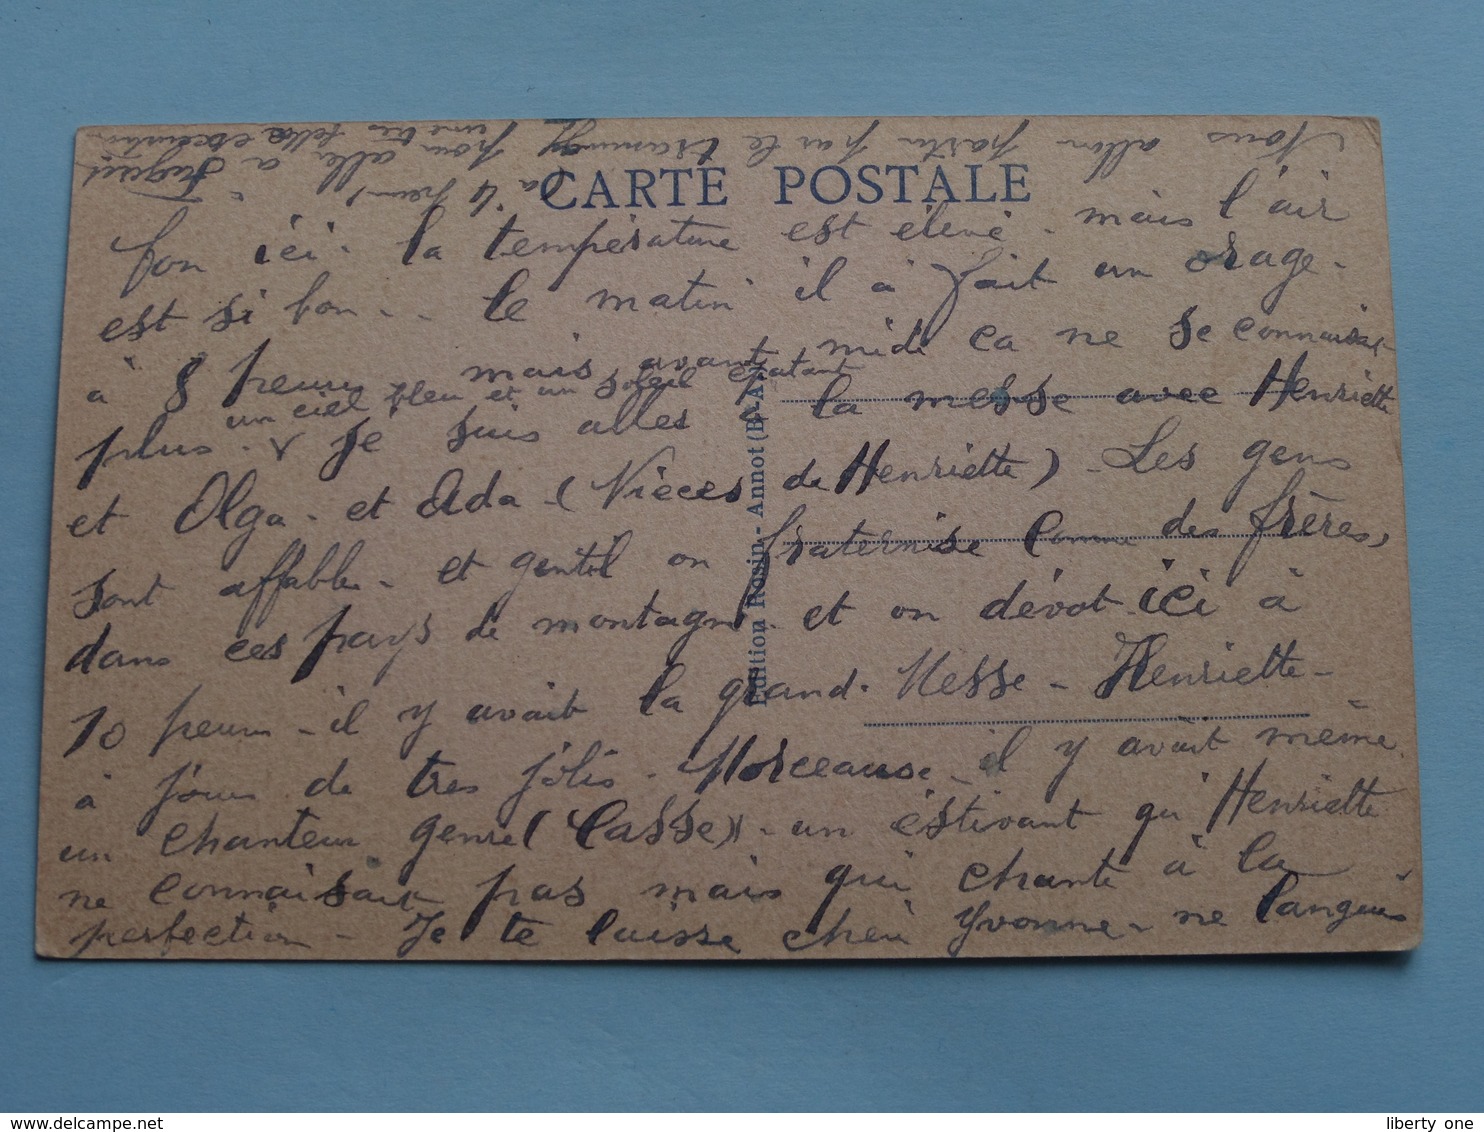 Nous allons partir par le tramway pour aller à
à 4 heures
une très belle excursion
CARTE POSTALE
bon ici. la température est élevé. mais l'air
est si bon.. le matin il à fait un orage.
à 8 heures mais avant midi ca ne se connaissait
un ciel bleu et un soleil épatant
plus. v je suis allés à la messe avec Henriette
et Olga. et Ada. (Nièces de Henriette). Les gens
sont affable. et gentil on fraternise comme des frères,
dans ces pays de montagne. et on dévot ici à
10 heures - il y avait la grand. Messe - Henriette -
à joué de tres jolis. Morceause. il y avait même
un chanteur genre (Casse). un éstivant qui Henriette
ne connaissait pas mais qui chante à la
perfection - Je te laisse cheri Yvonne. ne languis
Edition Rosin - Annot (B.-A.)
liberty one